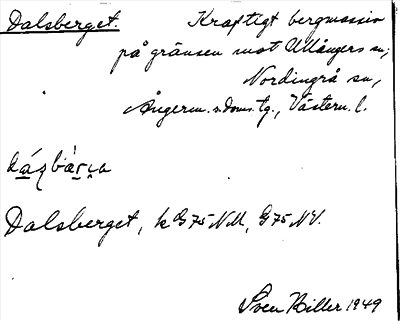 Dalsberget. Kraftigt bergmassiv
på gränsen mot Ullångers sn;
Nordingrå sn,
Ångerm. s. doms. tg., Västern. l.
Dalsberget, k G 75 NV.
Sven Biller 1949